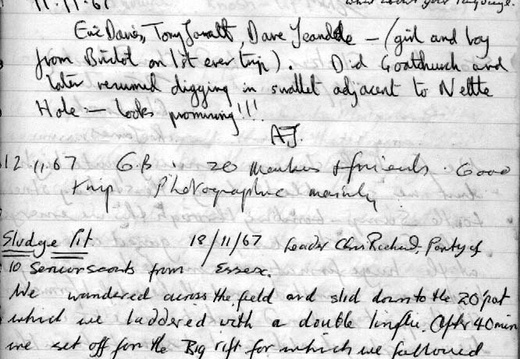 11.11.67
Eric Davies, Tony Jarratt, Dave Yeandle — (girl and boy
from Bristol on 1st ever trip). Did Goatchurch and
later resumed digging in swallet adjacent to Nettle
Hole — looks promising!!!
AJ.
12.11.67 G.B. 20 Members + friends. Good
trip Photographic mainly
Sludge Pit 18/11/67 Leader Chris Richard, Party of
10 Senior scouts from Essex.
We wandered across the field and slid down to the 20' pot
which we laddered with a double lengths. After 40 min
we set off for the Big rift for which we followed